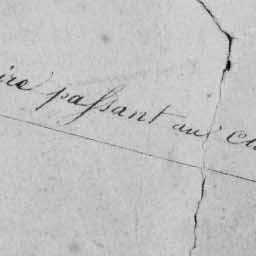 ire paſsant au